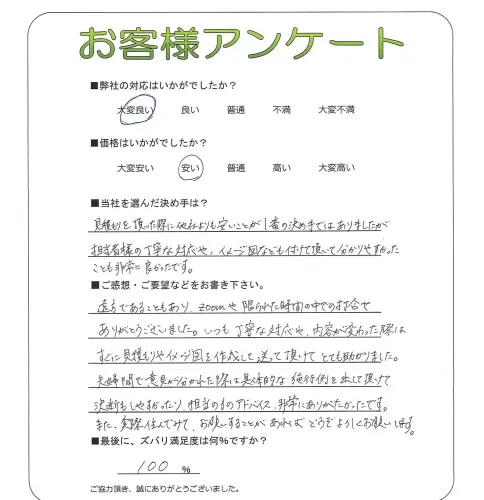 お客様アンケート
■弊社の対応はいかがでしたか？
大変良い 良い 普通 不満 大変不満
■価格はいかがでしたか？
大変安い 安い 普通 高い 大変高い
■当社を選んだ決め手は？
見積もりを頂いた際に他社よりも安いことが1番の決め手ではありましたが
担当者様の丁寧な対応や、イメージ図なども付けて頂いて分かりやすかった
ことも非常に良かったです。
■ご感想・ご要望などをお書き下さい。
遠方であることもあり、zoomや限られた時間の中での打合せ
ありがとうございました。いつも丁寧な対応や、内容が変わった際は
すぐに見積もりやイメージ図を作成して送って頂けてとても助かりました。
夫婦間で意見が分かれた際は具体的な施行例を出して頂けて
決断もしやすかったり、担当の方のアドバイス、非常にありがたかったです。
また、実際住んでみて、お願いすることがあればどうぞよろしくお願いします。
■最後に、ズバリ満足度は何%ですか？
100 %
ご協力頂き、誠にありがとうございました。